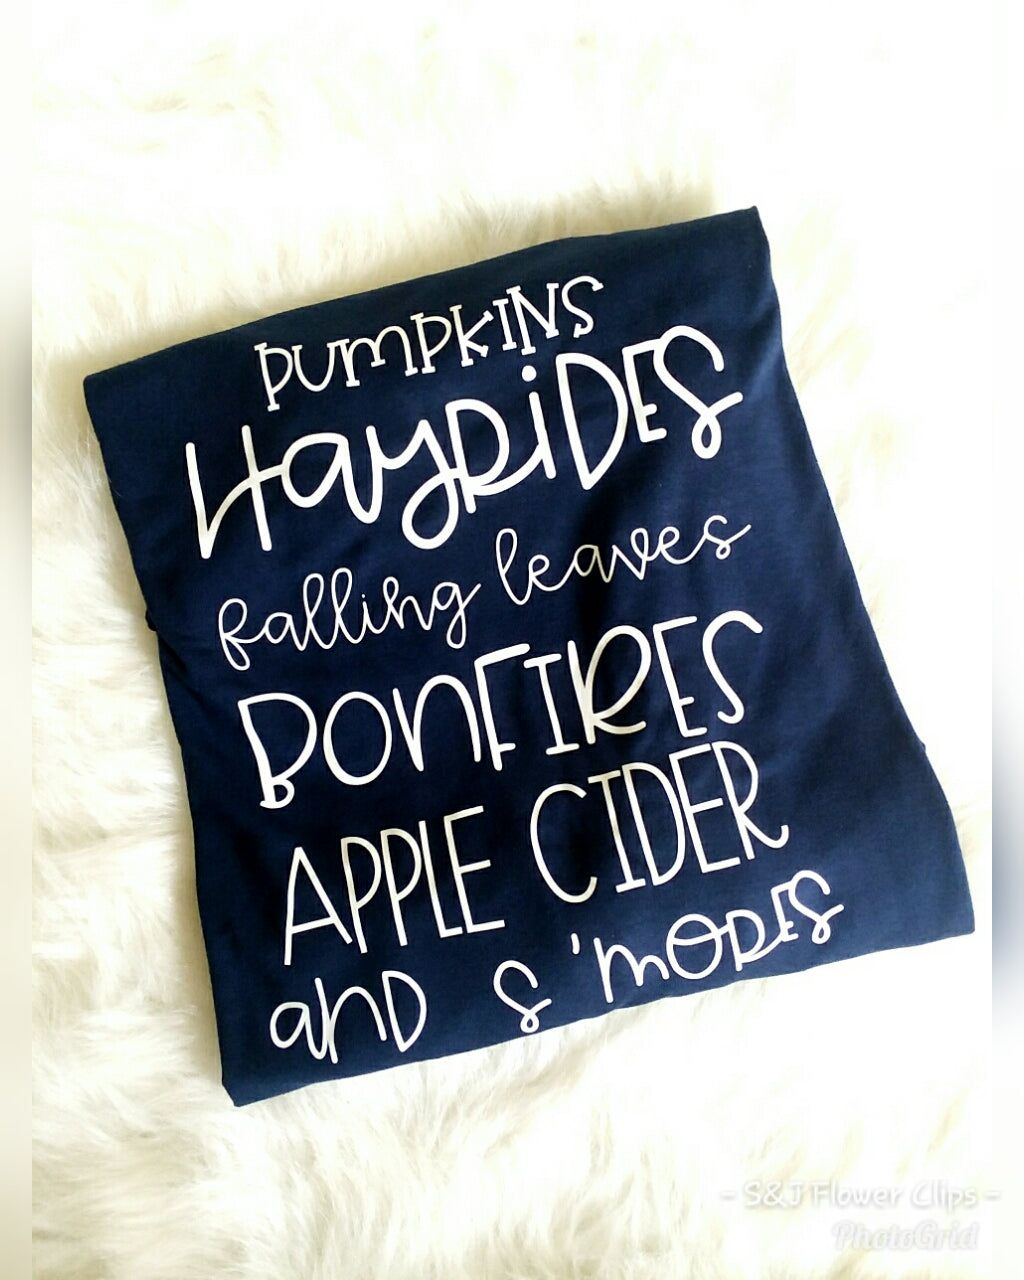 PUMPKINS
HayRiDES
falling leaves
BonFIRES
APPLE CIDER
anD S'mORES
- S&J Flower Clips -
PhotoGrid